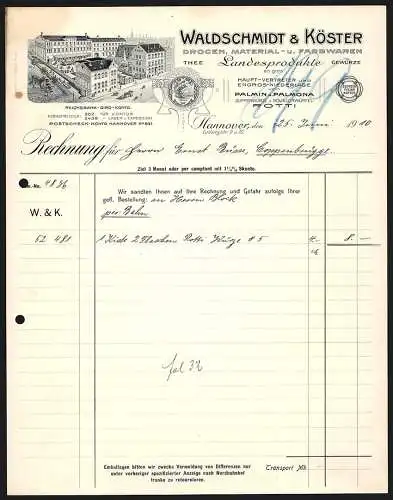 WALDSCHMIDT & KÖSTER
DROGEN, MATERIAL- U. FARBWAREN
THEE Landesprodukte GEWÜRZE
en gros
HAUPT-VERTRETER und
ENGROS-NIEDERLAGE
PALMIN u. PALMONA
TOTTI
REICHSBANK-GIRO-KONTO.
POSTSCHECK-KONTO HANNOVER No 651
Hannover, den 25. Juni 1910
Rechnung für Herrn Ernst Coppenbrügge.
Ziel 3 Monat oder per comptant mit 1½% Skonto.
4886
Wir sandten Ihnen auf Ihre Rechnung und Gefahr zufolge Ihrer
gefl. Bestellung: an Herrn Block
per Bahn
W. & K.
52 481 1 Kiste 2 Flaschen Totti Würze # 5 4.- 8.-
fol 32
Emballagen bitten wir zwecks Vermeidung von Differenzen nur
unter vorheriger spezifizierter Anzeige nach Nordbahnhof
franko zu retournieren.
Transport Mk.